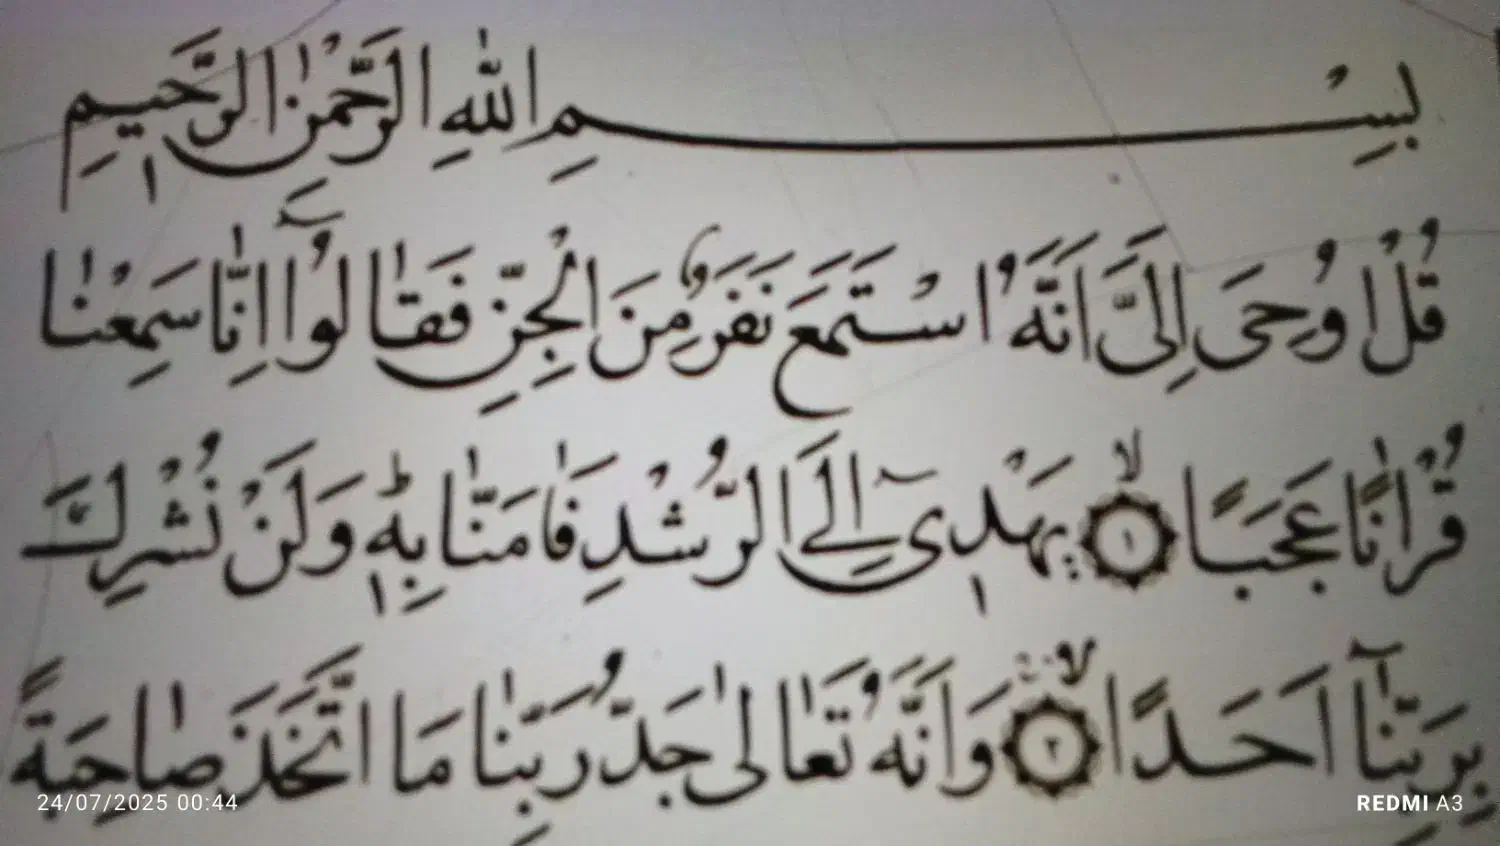 بِسْمِ اللّٰهِ الرَّحْمٰنِ الرَّحِيْمِ
قُلْ اُوْحِىَ اِلَىَّ اَنَّهُ اسْتَمَعَ نَفَرٌ مِّنَ الْجِنِّ فَقَالُوْۤا اِنَّا سَمِعْنَا
قُرْاٰنًا عَجَبًا ۙ‏﴿۱﴾ يَّهْدِىْۤ اِلَى الرُّشْدِ فَاٰمَنَّا بِهٖ ؕ وَلَنْ نُّشْرِكَ
بِرَبِّنَاۤ اَحَدًا ۙ‏﴿۲﴾ وَّاَنَّهٗ تَعٰلٰى جَدُّ رَبِّنَا مَا اتَّخَذَ صَاحِبَةً
24/07/2025 00:44
REDMI A3